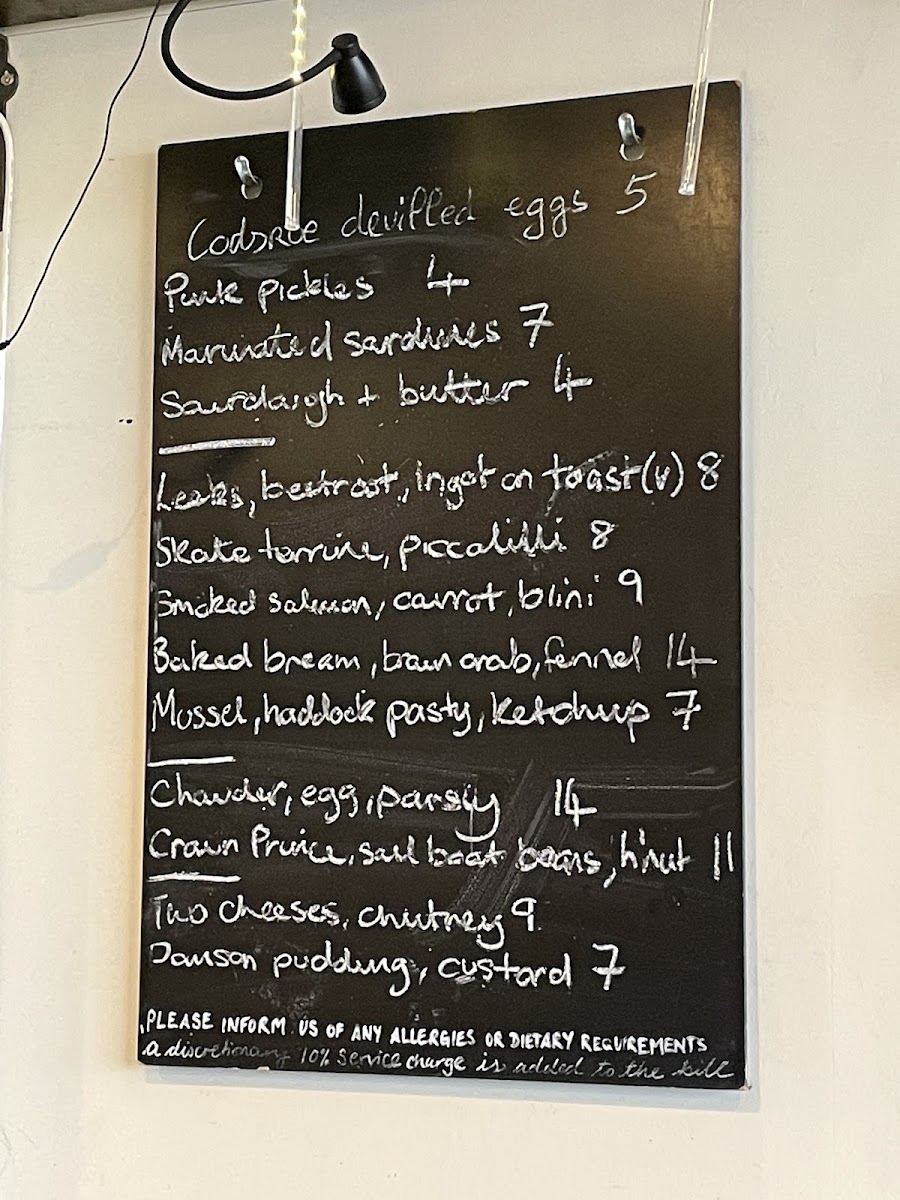 Codsroe devilled eggs 5
Punk pickles 4
Marinated sardines 7
Sourdough + butter 4
Leeks, beetroot, Ingot on toast (v) 8
Skate terrine, piccalilli 8
Smoked salmon, carrot, blini 9
Baked bream, brown crab, fennel 14
Mussel, haddock pasty, ketchup 7
Chowder, egg, parsley 14
Crown Prince, sail boat beans, h'nut 11
Two cheeses, chutney 9
Damson pudding, custard 7
PLEASE INFORM US OF ANY ALLERGIES OR DIETARY REQUIREMENTS
a discretionary 10% service charge is added to the bill